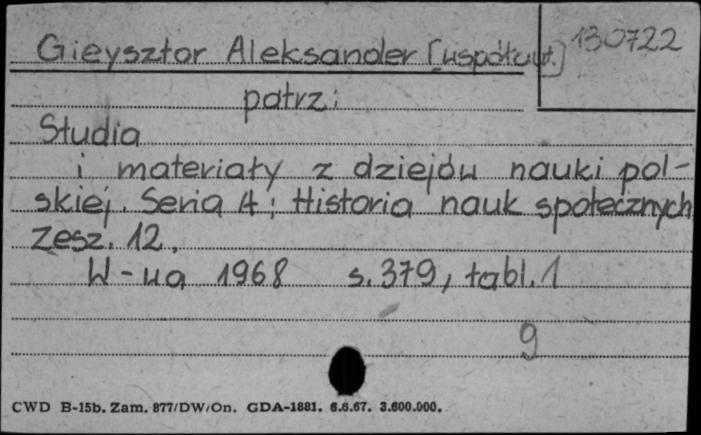 Gieysztor Aleksander [współaut.]
130722
patrz:
Studia
i materiały z dziejów nauki pol-
skiej. Seria A: Historia nauk społecznych
Zesz. 12.
W-wa 1968 s. 379, tabl. 1
9
CWD B-15b. Zam. 877/DW/On. GDA-1881. 6.6.67. 3.600.000.